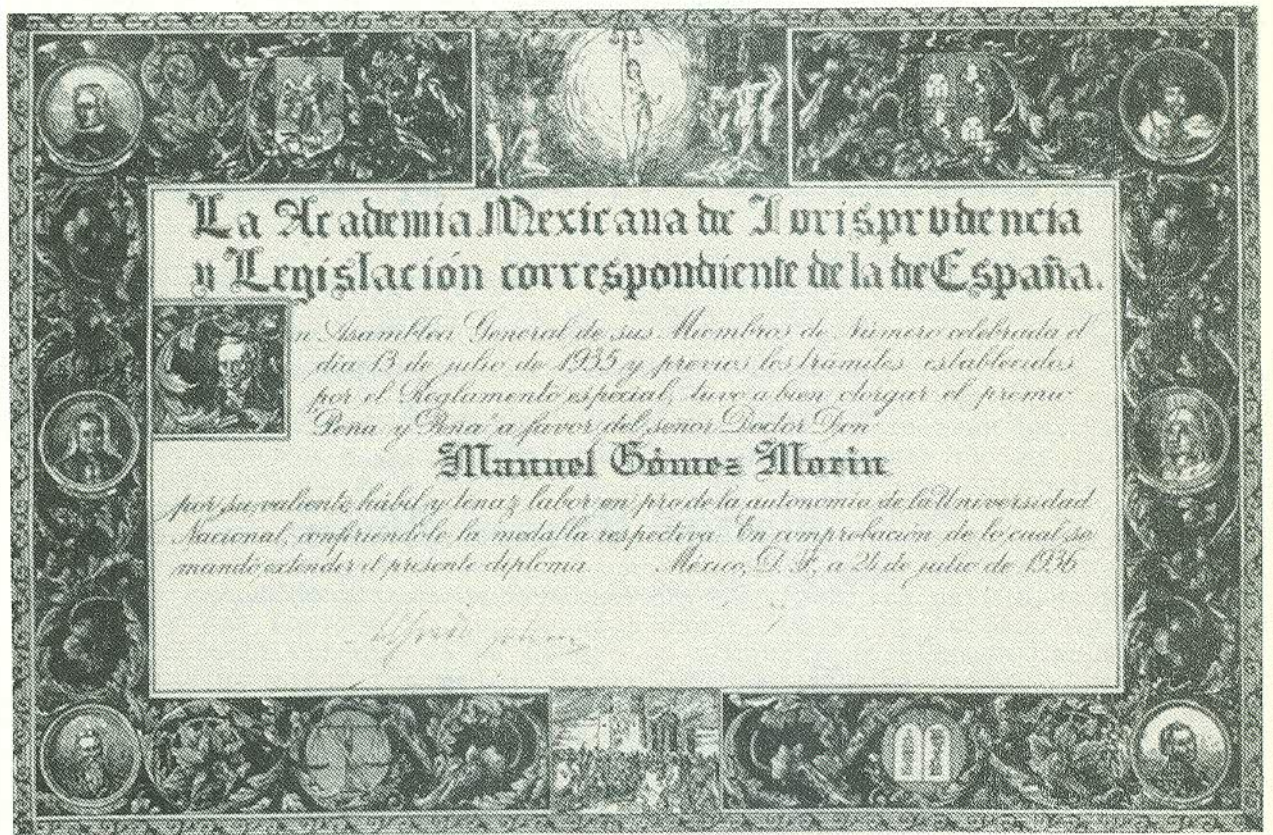 La Academia Mexicana de Jurisprudencia
y Legislación correspondiente de la de España.
En Asamblea General de sus Miembros de Número celebrada el
día 13 de julio de 1935 y previos los trámites establecidos
por el Reglamento especial, tuvo a bien otorgar el premio
"Peña y Peña" a favor del señor Doctor Don
Manuel Gómez Morin
por su valiente, hábil y tenaz labor en pro de la autonomía de la Universidad
Nacional, confiriéndole la medalla respectiva. En comprobación de lo cual se
mandó extender el presente diploma. México, D. F., a 24 de julio de 1936